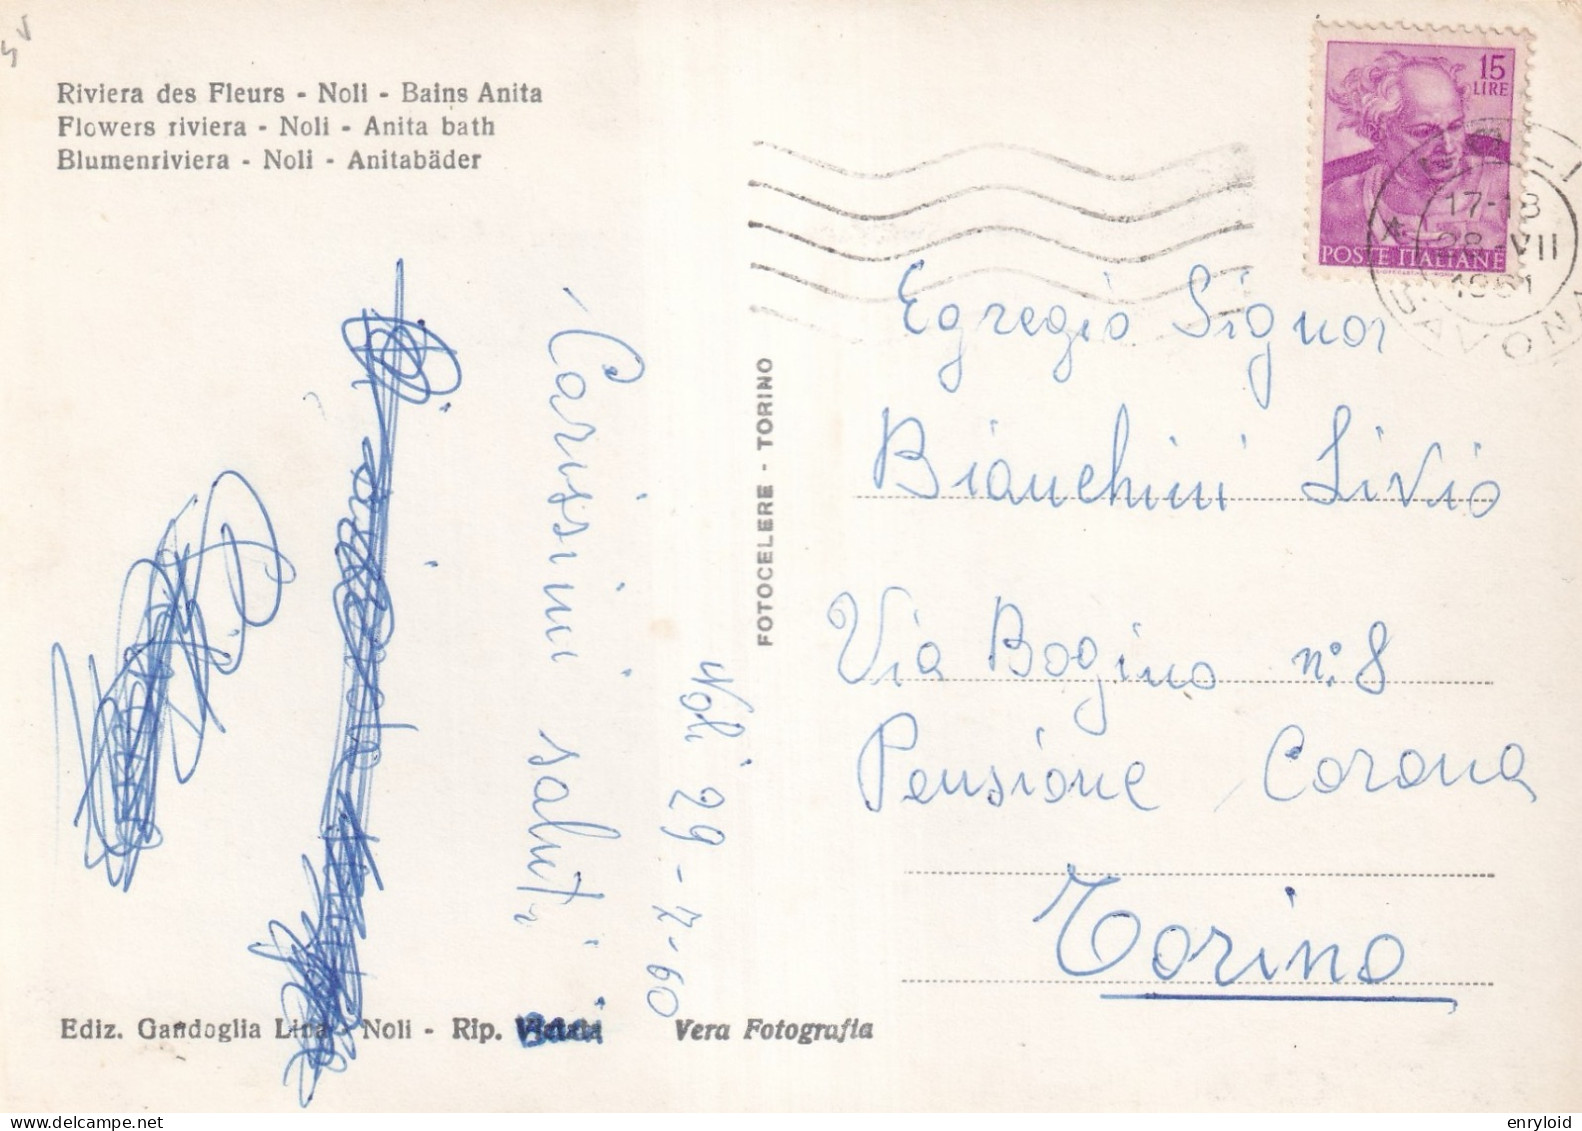 Riviera des Fleurs - Noli - Bains Anita
Flowers riviera - Noli - Anita bath
Blumenriviera - Noli - Anitabäder
15
LIRE
POSTE ITALIANE
17-18
28-VII
1961
SAVONA
Egregio Signor
Bianchini Livio
Via Bogino n.º 8
Pensione Corona
Torino
FOTOCELERE - TORINO
Noli 29-7-60
Carissimi saluti
Ediz. Gandoglia Lina - Noli - Rip.
Vera Fotografia
enryloid